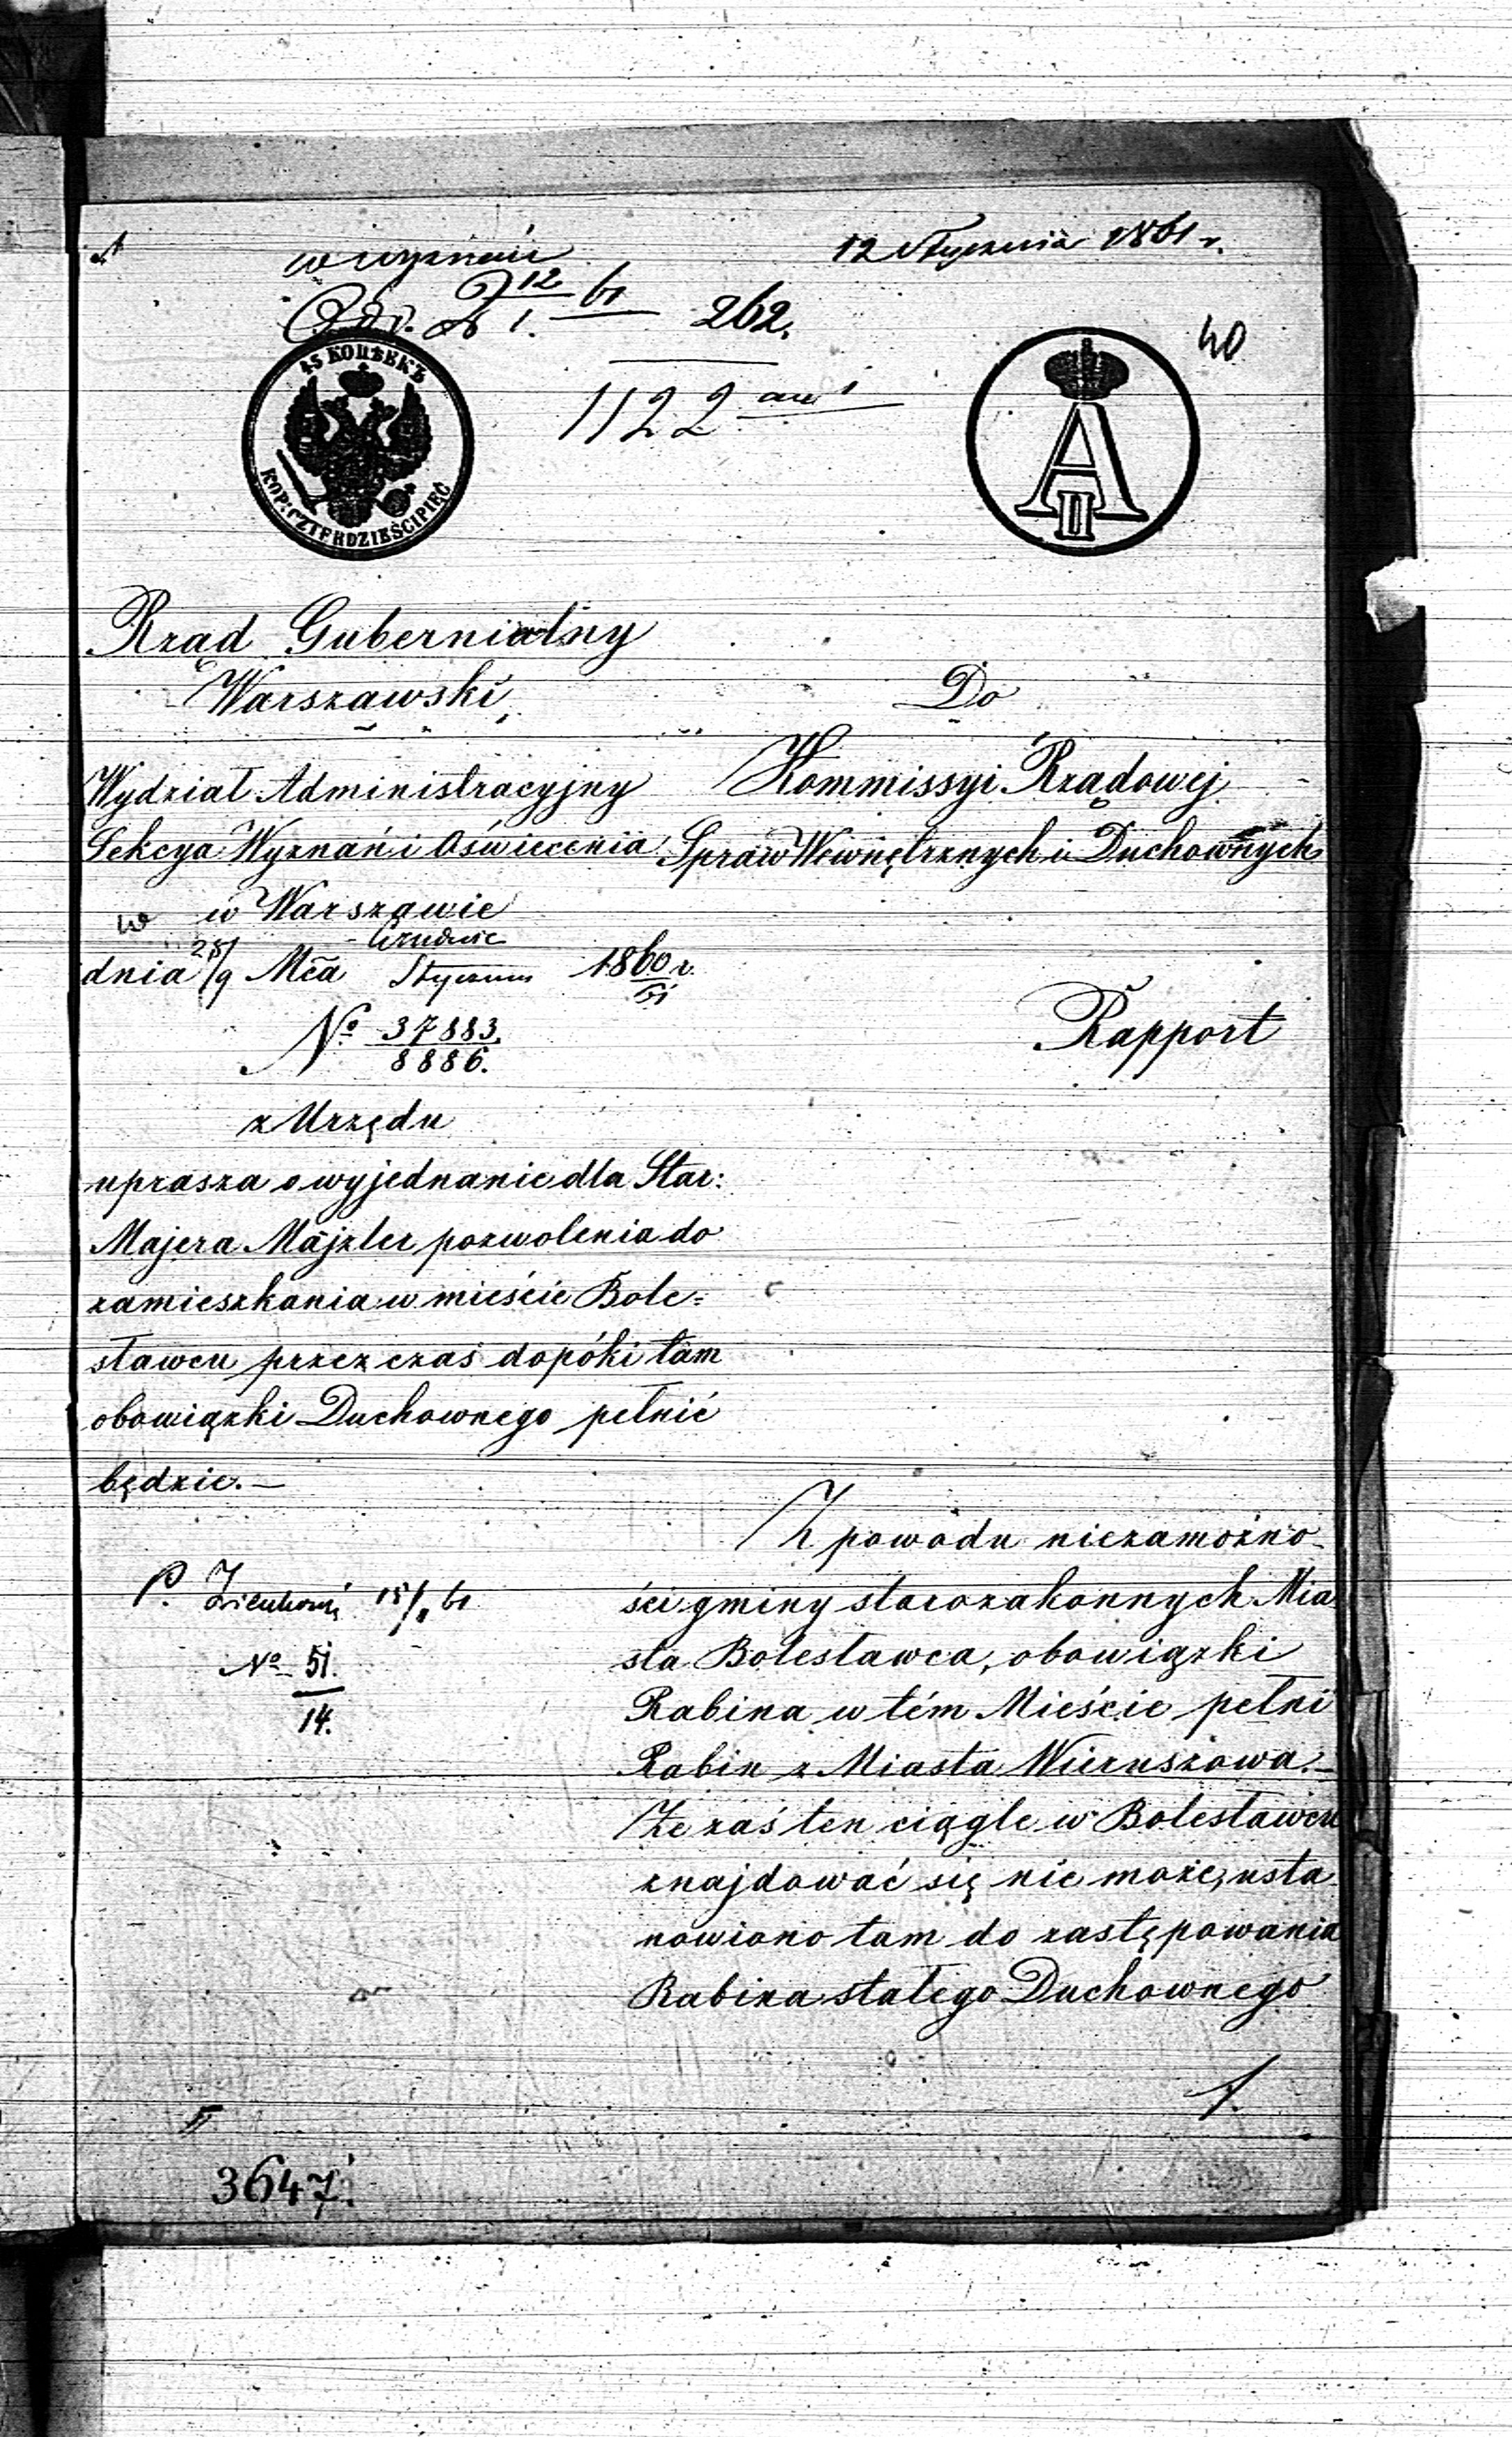 12 Stycznia 1861 r.
w wyznań
12 61 262.
1.
40
45 КОПѢЕКЪ
KOP: CZTERDZIEŚCI PIĘĆ
1122
A II
Rząd Gubernialny
Warszawski
Wydział Administracyjny
Sekcya Wyznań i Oświecenia
w w Warszawie
Grudnia
dnia 28/9 Mca Stycznia 1860/61 r.
No 37883.
8886.
z Urzędu
uprasza o wyjednanie dla Star:
Majera Majzler pozwolenia do
zamieszkania w mieście Bole=
sławcu przez czas dopóki tam
obowiązki Duchownego pełnić
będzie.—
Do
Kommissyi Rządowej
Spraw Wewnętrznych i Duchownych
Rapport
P. 15/1 61
No 51.
14.
Z powodu niezamożno-
ści gminy starozakonnych Mia
sta Bolesławca, obowiązki
Rabina w tém Mieście pełni
Rabin z Miasta Wieruszowa.—
Że zaś ten ciągle w Bolesławcu
znajdować się nie może, usta
nowiono tam do zastępowania
Rabina stałego Duchownego
/.
3647.